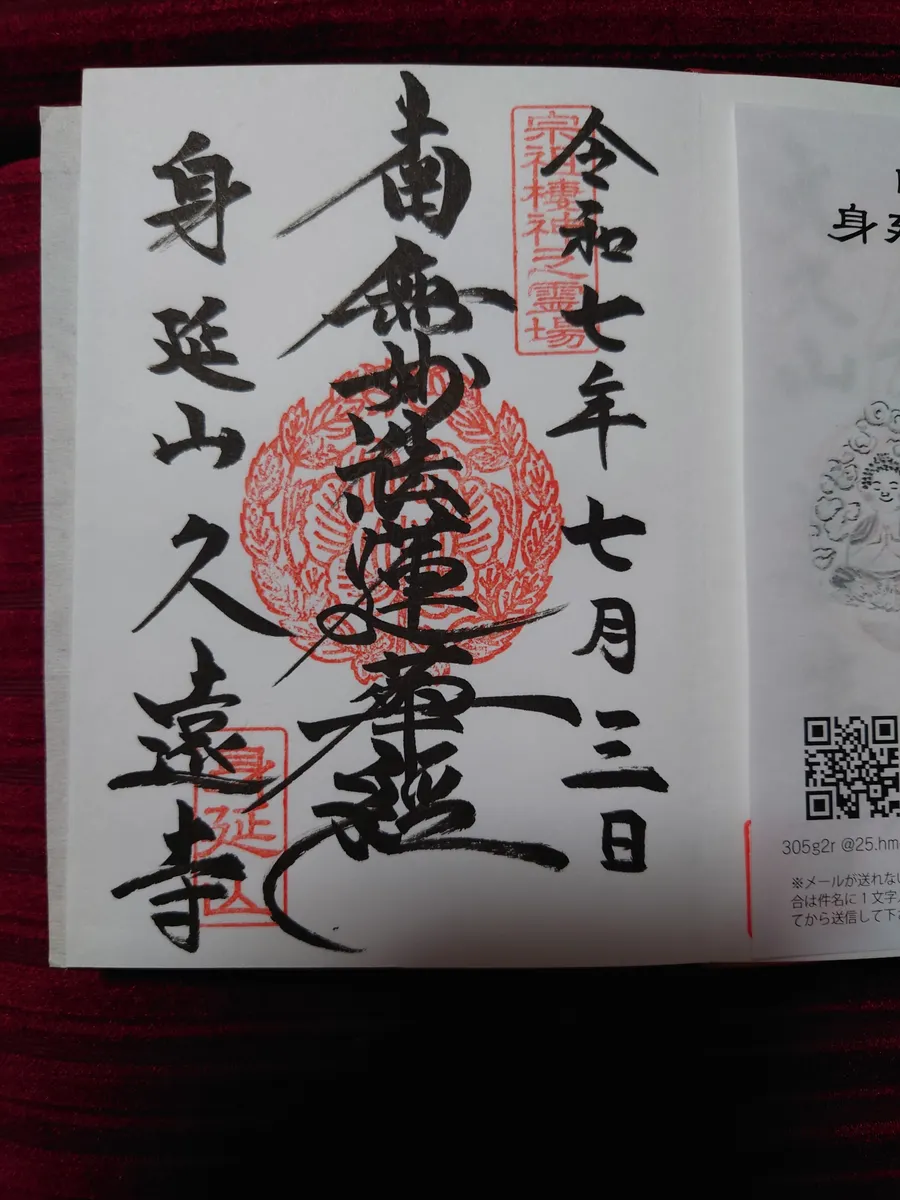 令和七年七月三日
宗祖棲神之霊場
南無妙法蓮華経
身延山久遠寺
身延山
身延
305g2r @25.hm
※メールが送れない
合は件名に1文字
てから送信して下さ